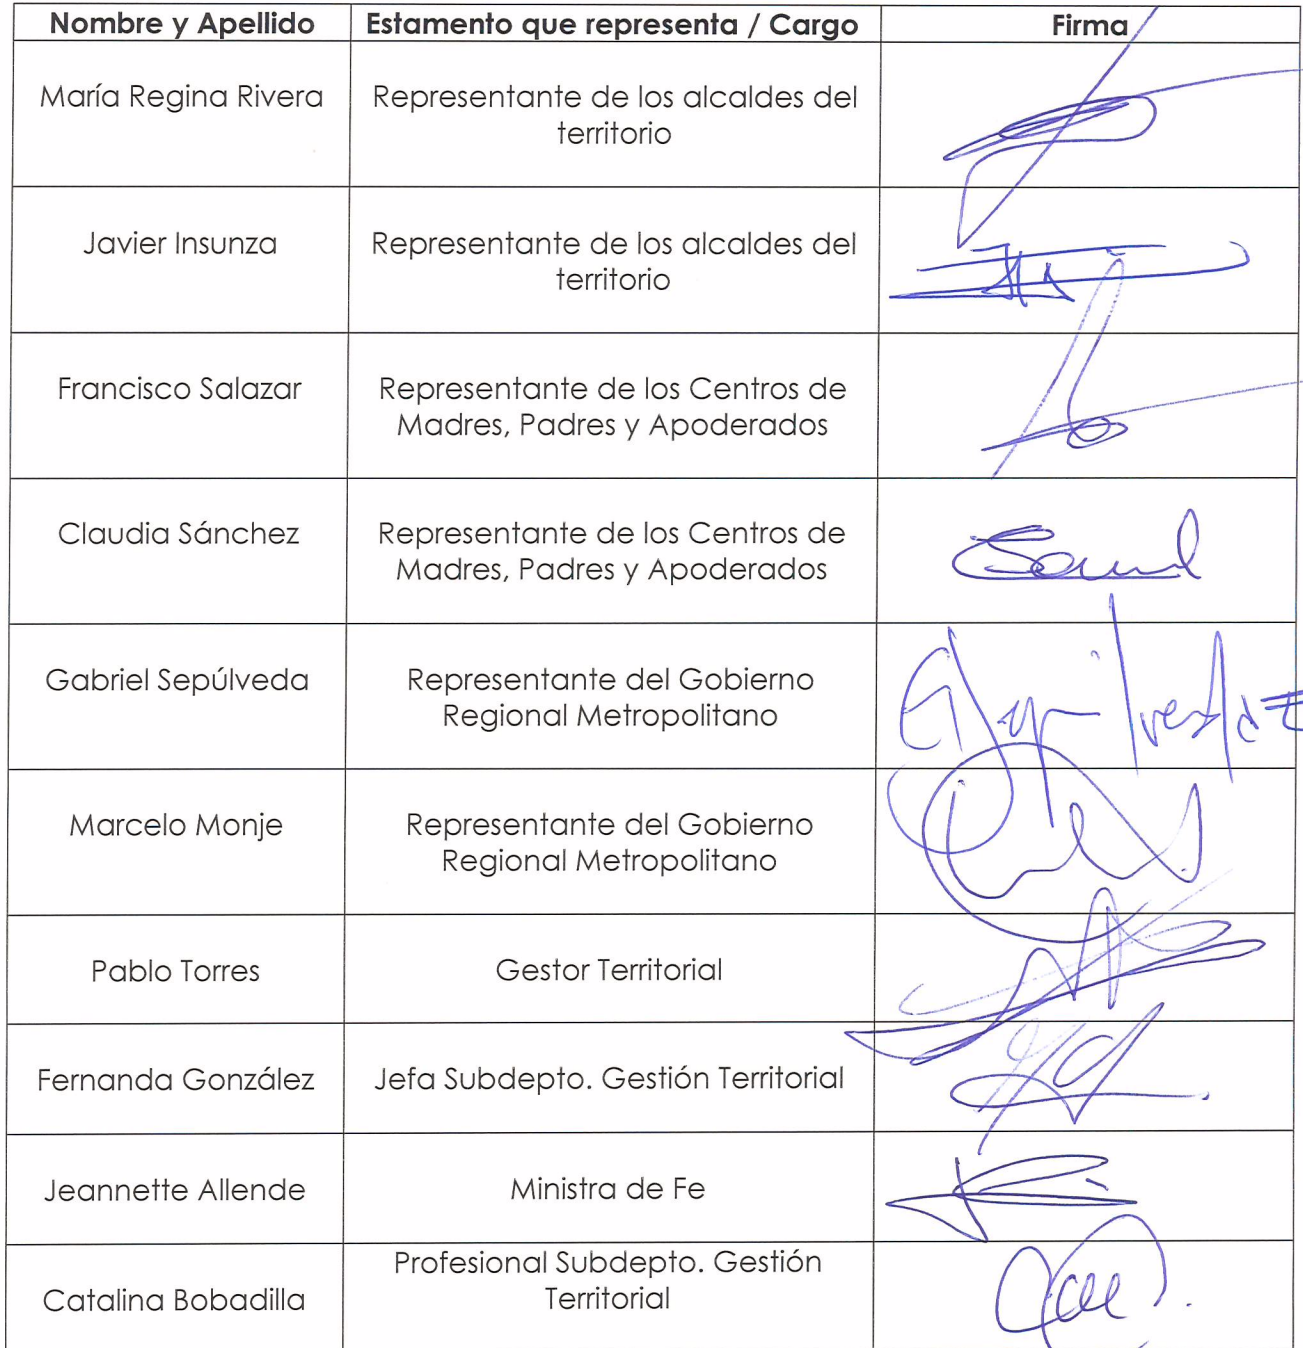 Nombre y Apellido Estamento que representa / Cargo Firma
María Regina Rivera Representante de los alcaldes del
territorio
Javier Insunza Representante de los alcaldes del
territorio
Francisco Salazar Representante de los Centros de
Madres, Padres y Apoderados
Claudia Sánchez Representante de los Centros de
Madres, Padres y Apoderados
Gabriel Sepúlveda Representante del Gobierno
Regional Metropolitano
Marcelo Monje Representante del Gobierno
Regional Metropolitano
Pablo Torres Gestor Territorial
Fernanda González Jefa Subdepto. Gestión Territorial
Jeannette Allende Ministra de Fe
Profesional Subdepto. Gestión
Catalina Bobadilla Territorial